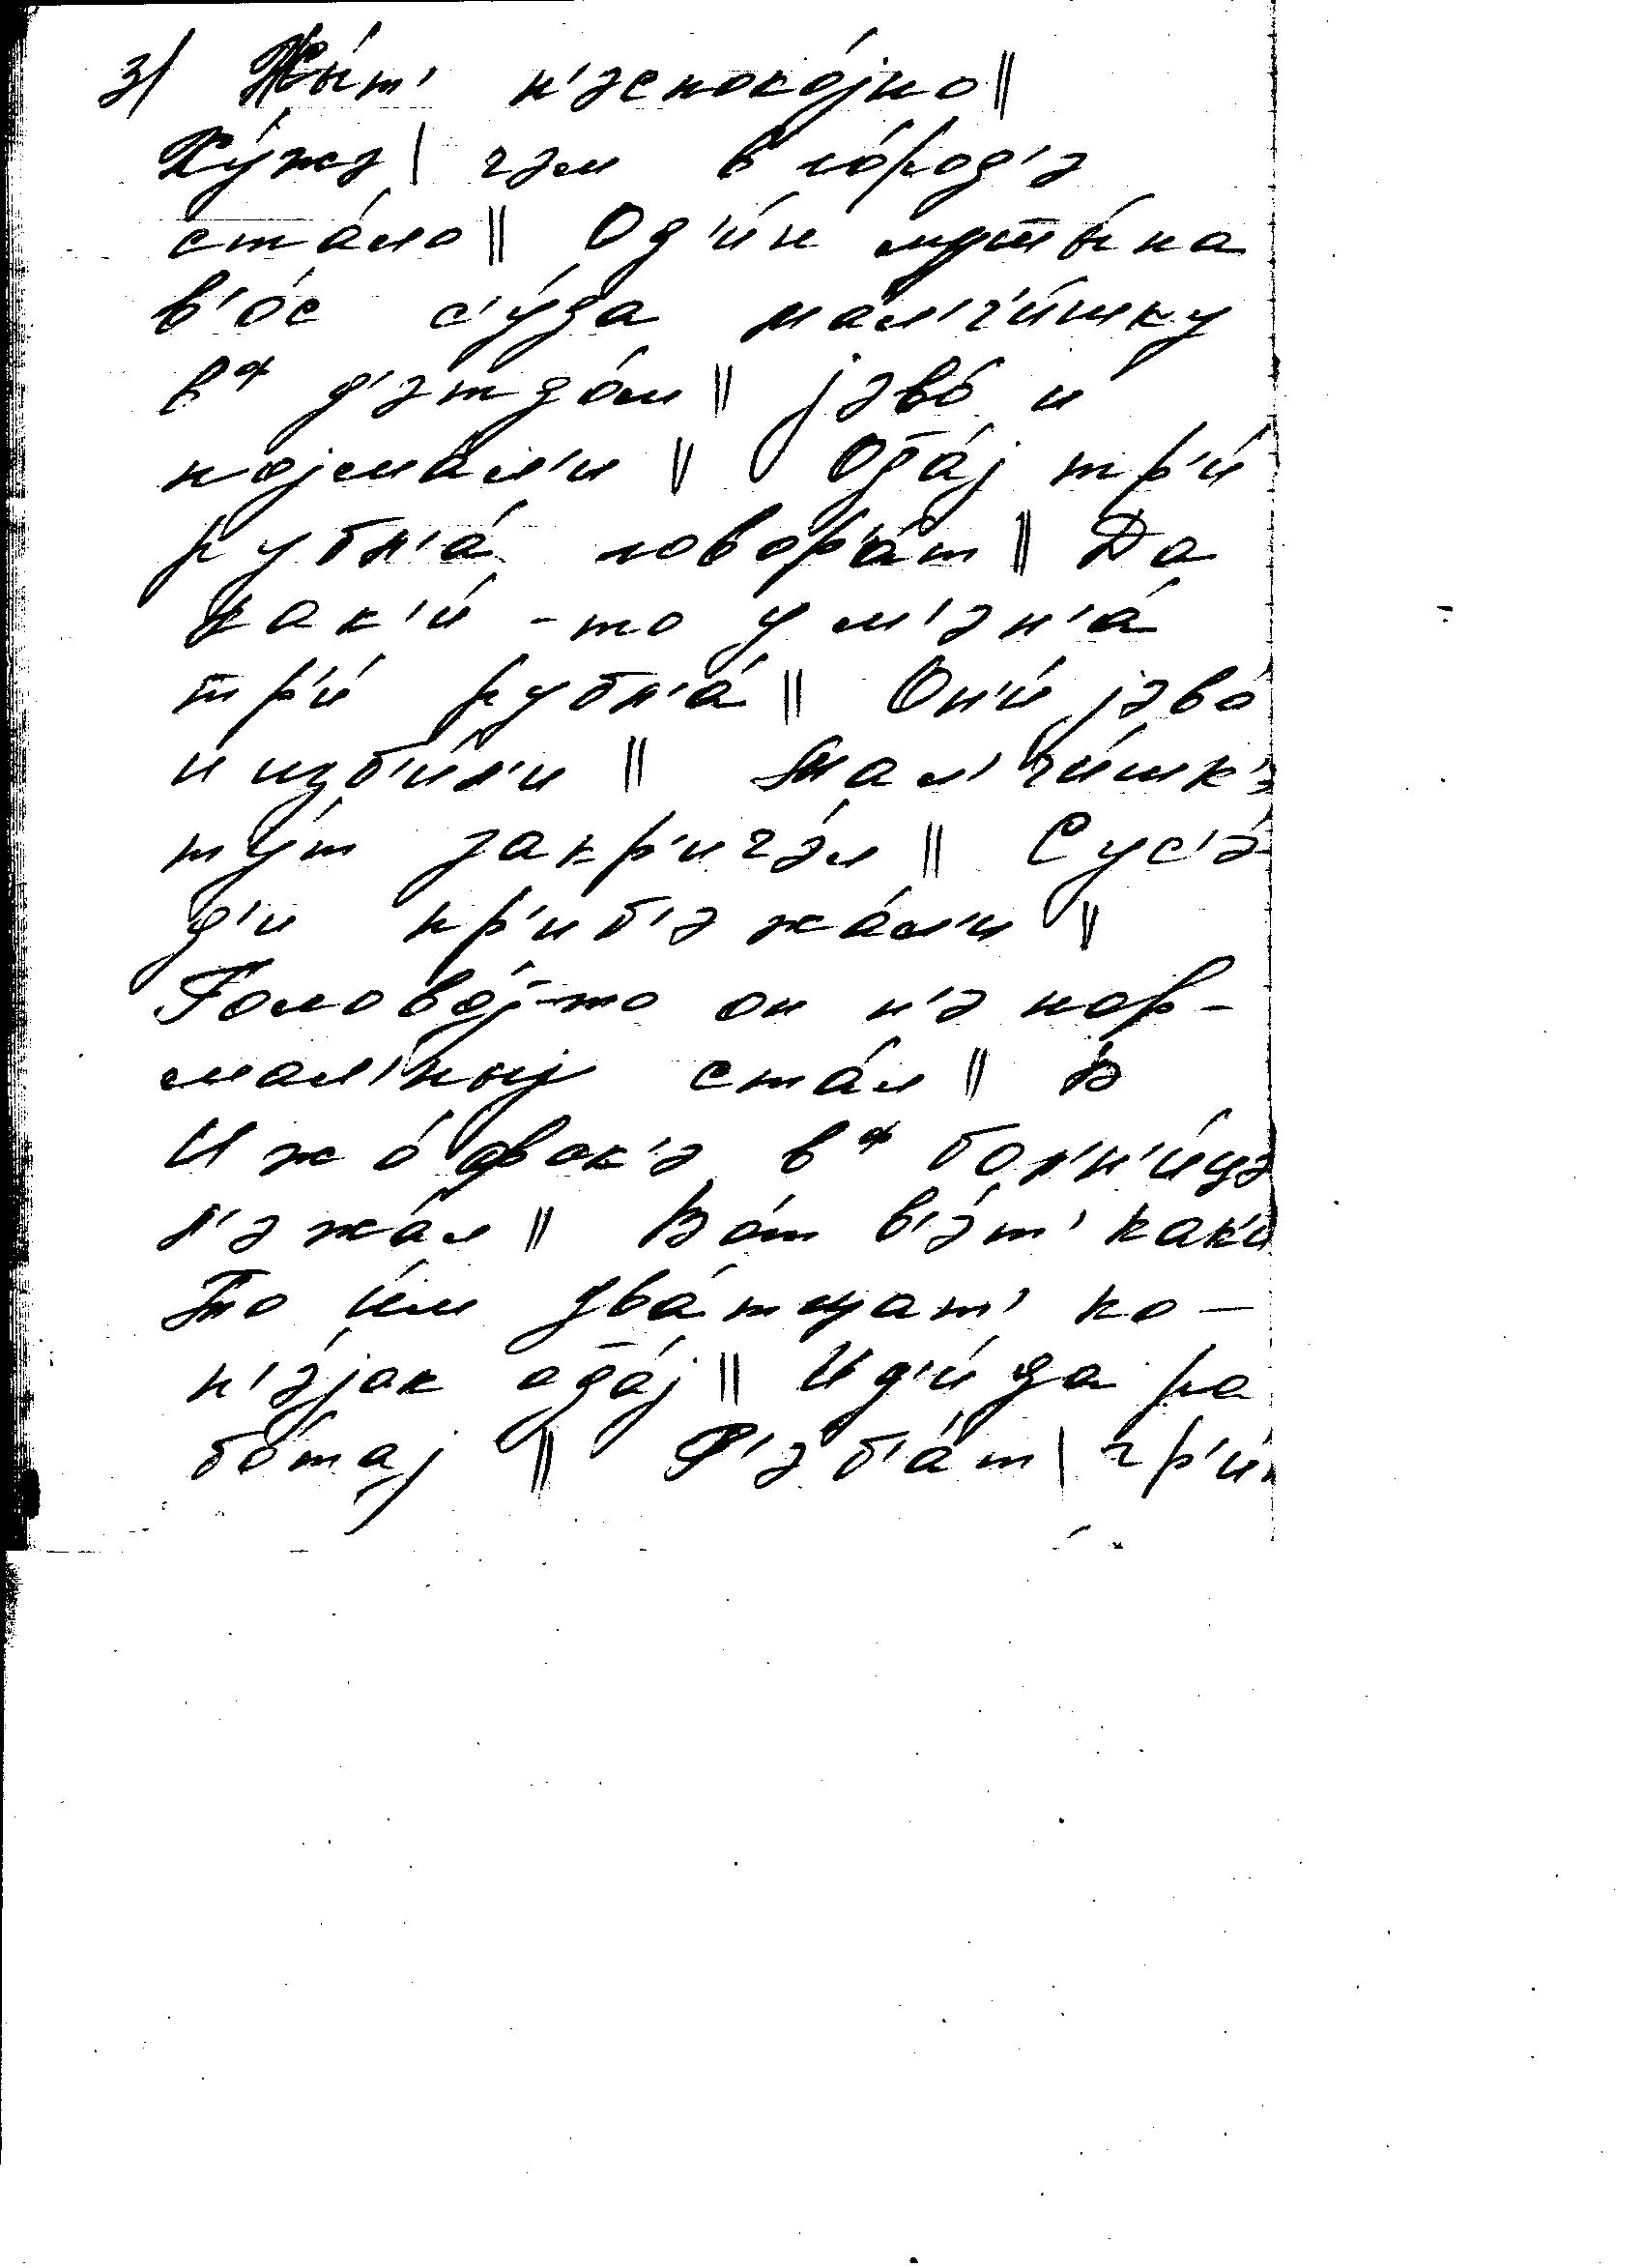 3) Жы́т' н'эспоко́jно ||
Ху́жэ | чэм в го́род'э
ста́ло || Од'и́н мушшы́на
в'о́с с'у́да мал'ч'и́шку
в д'этдо́м || jэво́ и
поjма́л'и || Од̄а́j тр'и́
рубл'а́ говор'а́т || Да
как'и́-то у м'эн'а́
тр'и́ рубл'а́ || Он'и́ jэво́
и изб'и́л'и || Мал'ч'и́шк'э
ту́т закр'ича́л || Сус'э́-
д'и пр'иб'эжа́л'и ||
Голово́j-то он н'э нор-
мал'ныj ста́л ||
И жо́ в бол'н'и́цэ
л'эжа́л || Во́т в'э́т' как'и́
то и́м два́тцат' ко-
п'э́jак од̄а́j || Ид'и́ да ра
бо́таj || Р'эб'а́т |